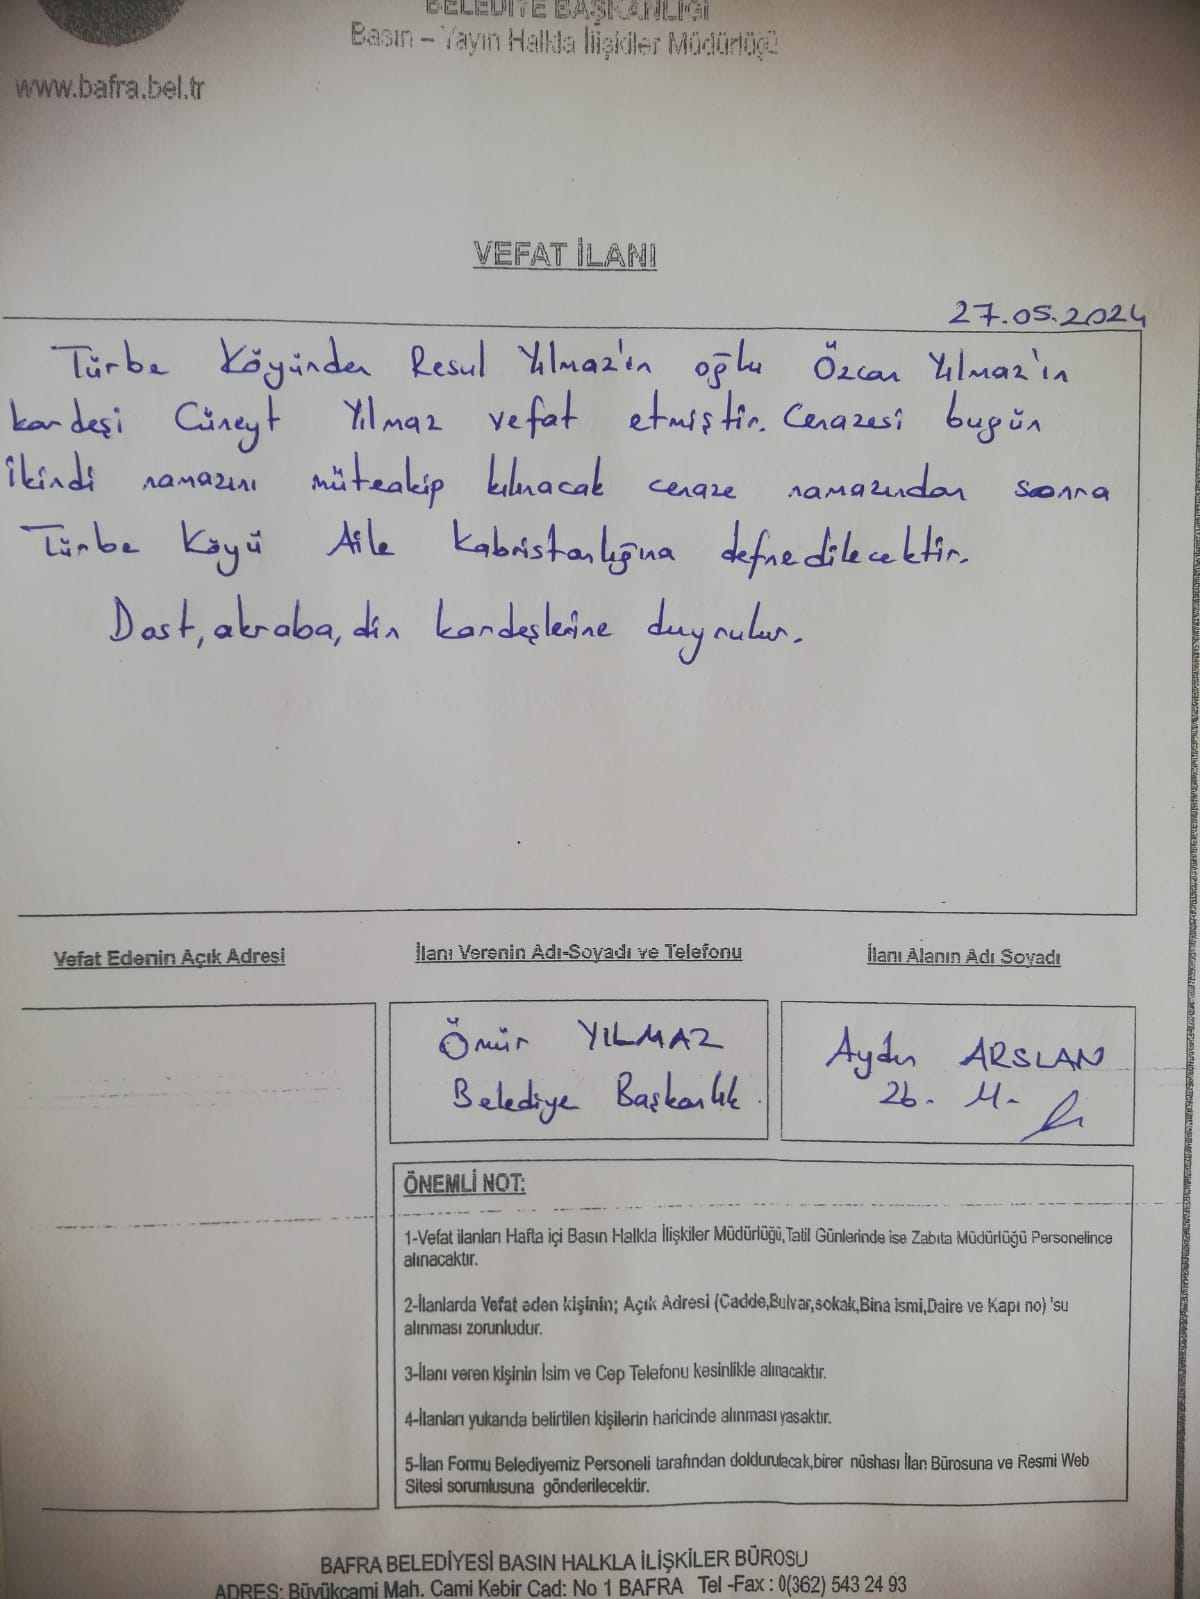 BELEDİYE BAŞKANLIĞI
Basın – Yayın Halkla İlişkiler Müdürlüğü
www.bafra.bel.tr
VEFAT İLANI
27.05.2024
Türbe Köyünden Resul Yılmaz'ın oğlu Özcan Yılmaz'ın
kardeşi Cüneyt Yılmaz vefat etmiştir. Cenazesi bugün
ikindi namazını müteakip kılınacak cenaze namazından sonra
Türbe Köyü Aile Kabristanlığına defnedilecektir.
Dost, akraba, din kardeşlerine duyrulur.
Vefat Edenin Açık Adresi
İlanı Verenin Adı-Soyadı ve Telefonu
İlanı Alanın Adı Soyadı
Ömür YILMAZ
Belediye Başkanlık
Aydın ARSLAN
ÖNEMLİ NOT:
1-Vefat ilanları Hafta içi Basın Halkla İlişkiler Müdürlüğü,Tatil Günlerinde ise Zabıta Müdürlüğü Personelince
alınacaktır.
2-İlanlarda Vefat eden kişinin; Açık Adresi (Cadde,Bulvar,sokak,Bina ismi,Daire ve Kapı no) 'su
alınması zorunludur.
3-İlanı veren kişinin İsim ve Cep Telefonu kesinlikle alınacaktır.
4-İlanları yukarıda belirtilen kişilerin haricinde alınması yasaktır.
5-İlan Formu Belediyemiz Personeli tarafından doldurulacak,birer nüshası İlan Bürosuna ve Resmi Web
Sitesi sorumlusuna gönderilecektir.
BAFRA BELEDİYESİ BASIN HALKLA İLİŞKİLER BÜROSU
ADRES: Büyükcami Mah. Cami Kebir Cad: No 1 BAFRA Tel -Fax : 0(362) 543 24 93